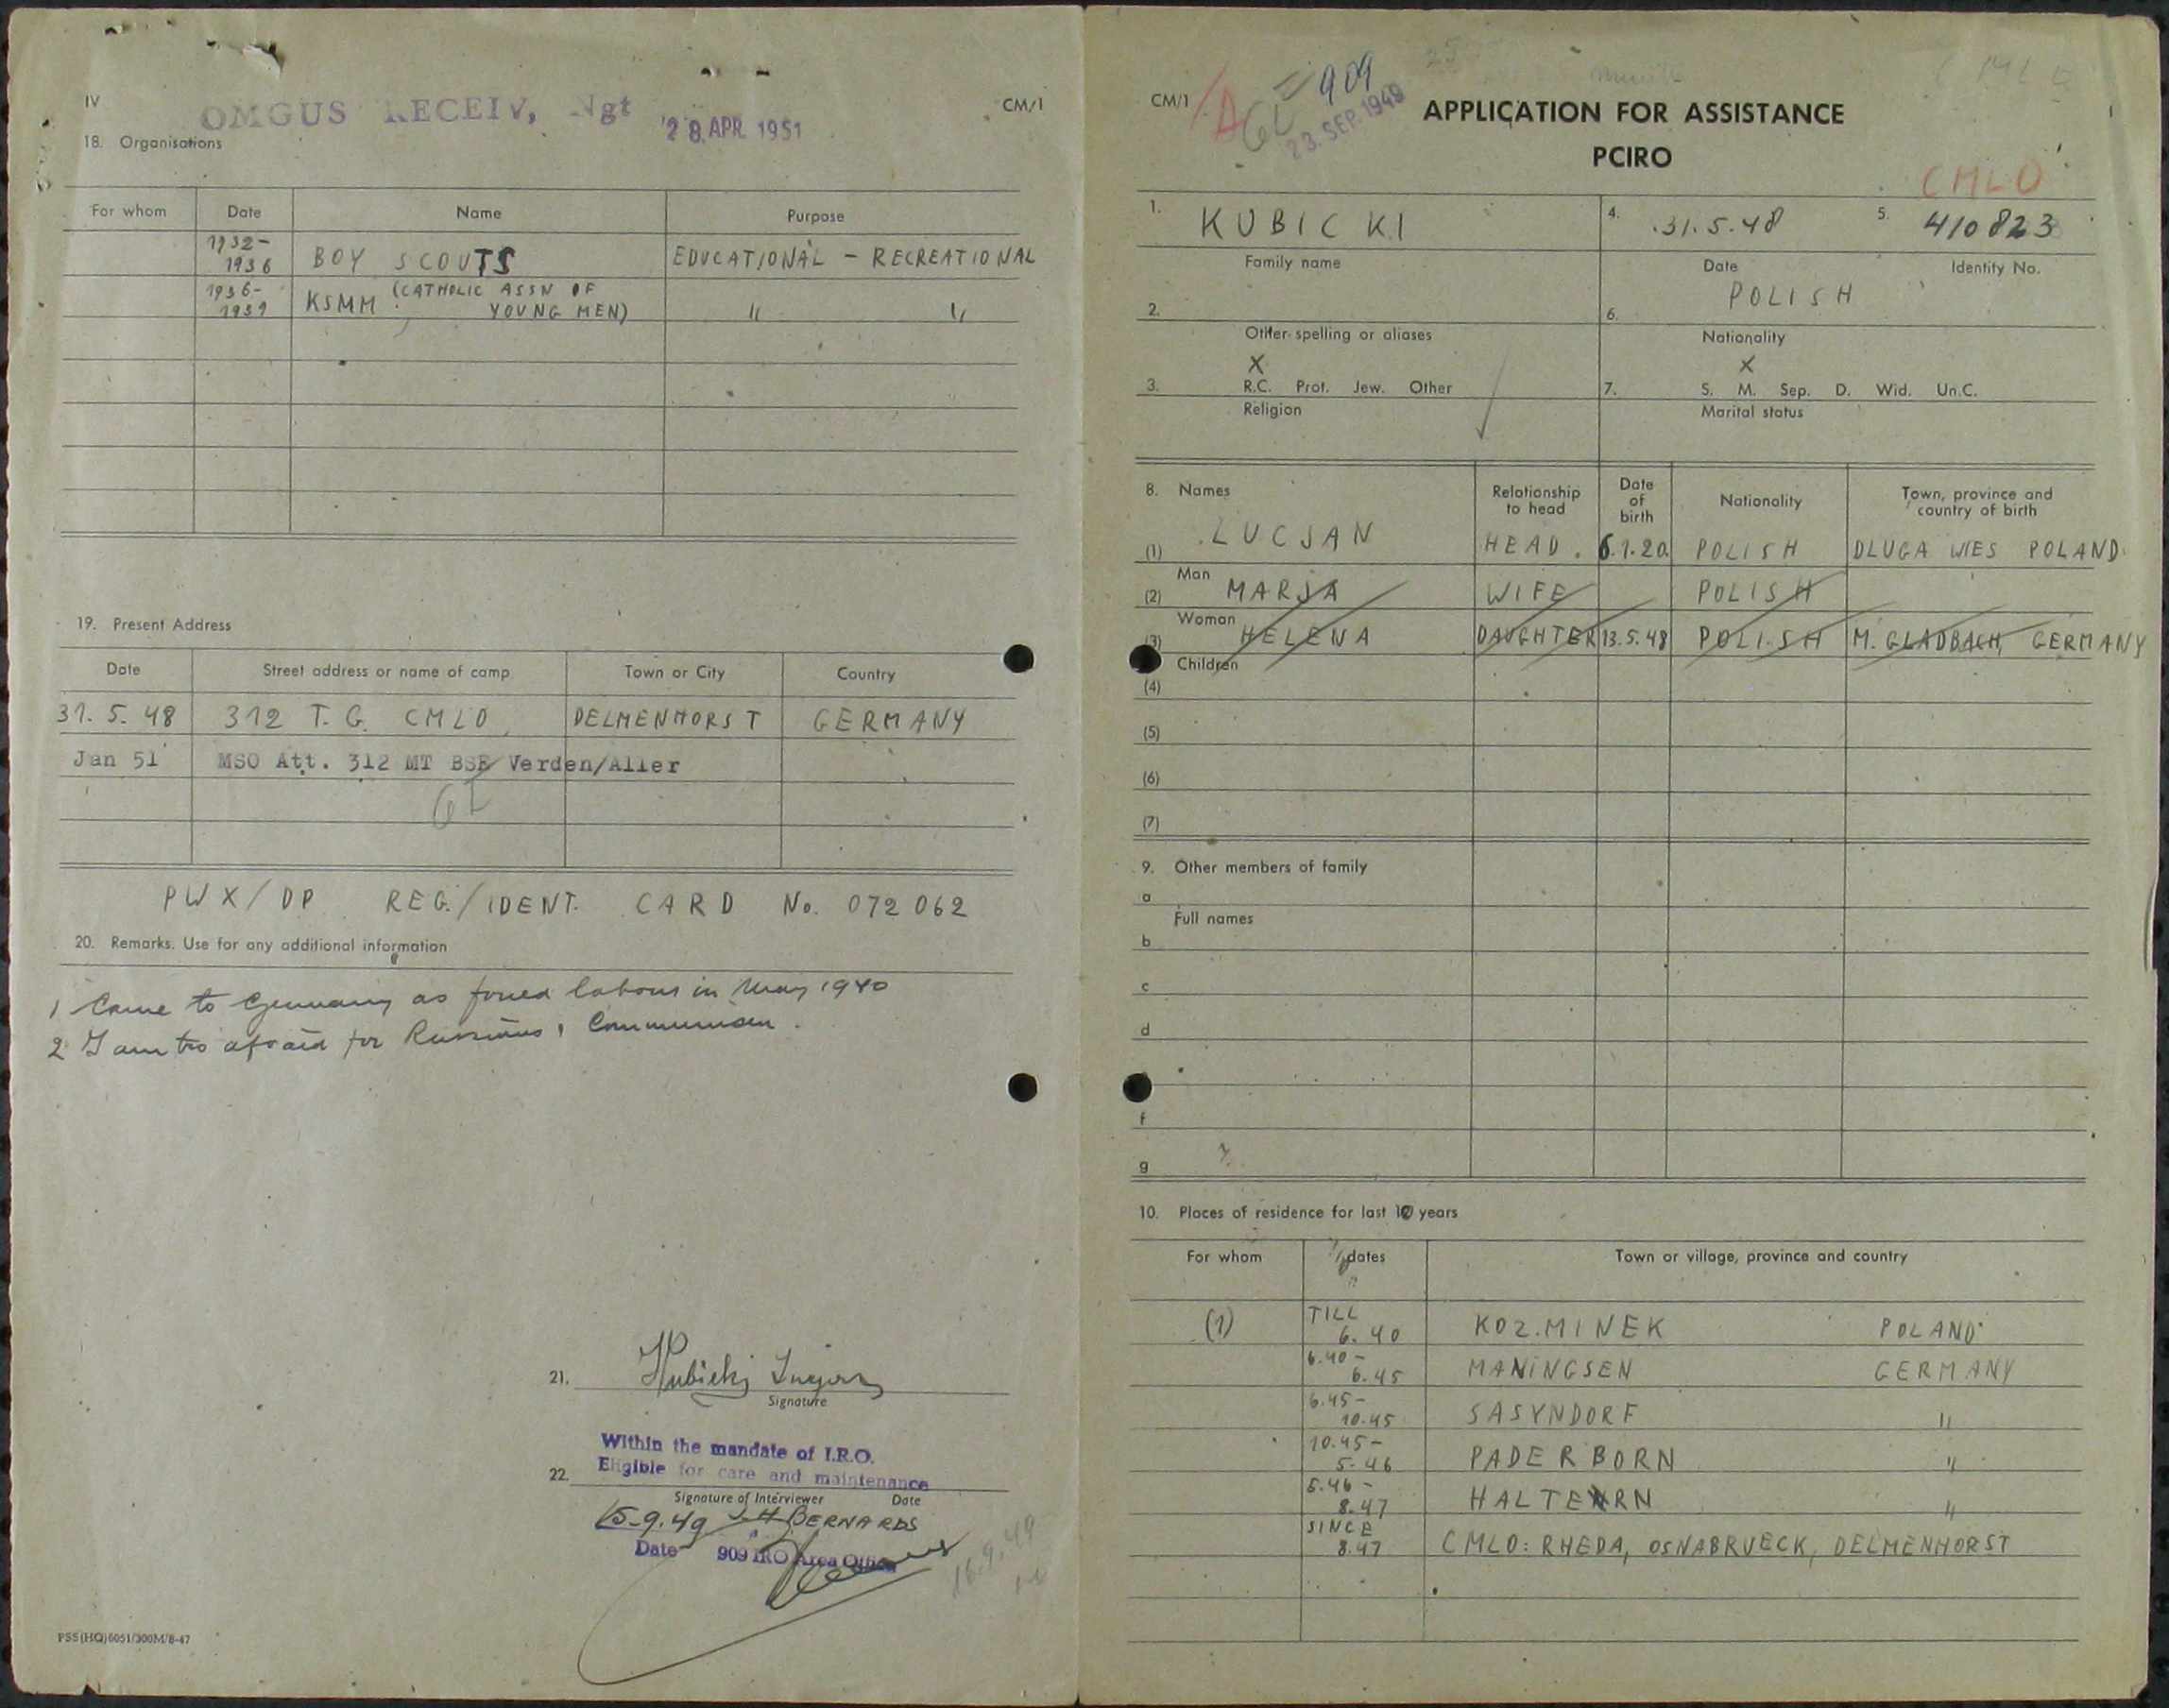 IV
CM/1
OMGUS RECEIV,
28. APR. 1951
18. Organisations
For whom Date Name Purpose
1932-1936 BOY SCOUTS EDUCATIONAL - RECREATIONAL
1936-1939 KSMM (CATHOLIC ASSN OF YOUNG MEN) " "
19. Present Address
Date Street address or name of camp Town or City Country
31. 5. 48 312 T. G. CMLO DELMENHORST GERMANY
Jan 51 MSO Att. 312 MT BSE Verden/Aller
GL
PWX/DP REG./IDENT. CARD No. 072062
20. Remarks. Use for any additional information
1 Came to Germany as forced labour in May 1940
2 I am too afraid for Russians, Communism.
21. Kubicki Lucjan
Signature
Within the mandate of I.R.O.
Eligible for care and maintenance
22.
Signature of Interviewer Date
15-9.49 J.H BERNARDS
Date 909 IRO Area Office
16.9.49
PSS(HQ)6051/300M/8-47
CM/1
GL = 909
23. SEP. 1949
APPLICATION FOR ASSISTANCE
PCIRO
CMLO
1. KUBICKI 4. 31.5.48 5. 410823
Family name Date Identity No.
2. 6. POLISH
Other spelling or aliases Nationality
X X
3. R.C. Prot. Jew. Other 7. S. M. Sep. D. Wid. Un.C.
Religion Marital status
8. Names Relationship to head Date of birth Nationality Town, province and country of birth
(1) LUCJAN HEAD. 6.1.20. POLISH DLUGA WIES POLAND
Man
(2) MARJA WIFE POLISH
Woman
(3) HELENA DAUGHTER 13.5.48 POLISH M. GLADBACH, GERMANY
Children
(4)
(5)
(6)
(7)
9. Other members of family
a
Full names
b
c
d
f
g
10. Places of residence for last 10 years
For whom dates Town or village, province and country
(1) TILL 6.40 KOZ.MINEK POLAND
6.40-6.45 MANINGSEN GERMANY
6.45-10.45 SASYNDORF "
10.45-5.46 PADERBORN "
5.46-8.47 HALTERN "
SINCE 8.47 CMLO: RHEDA, OSNABRUECK, DELMENHORST